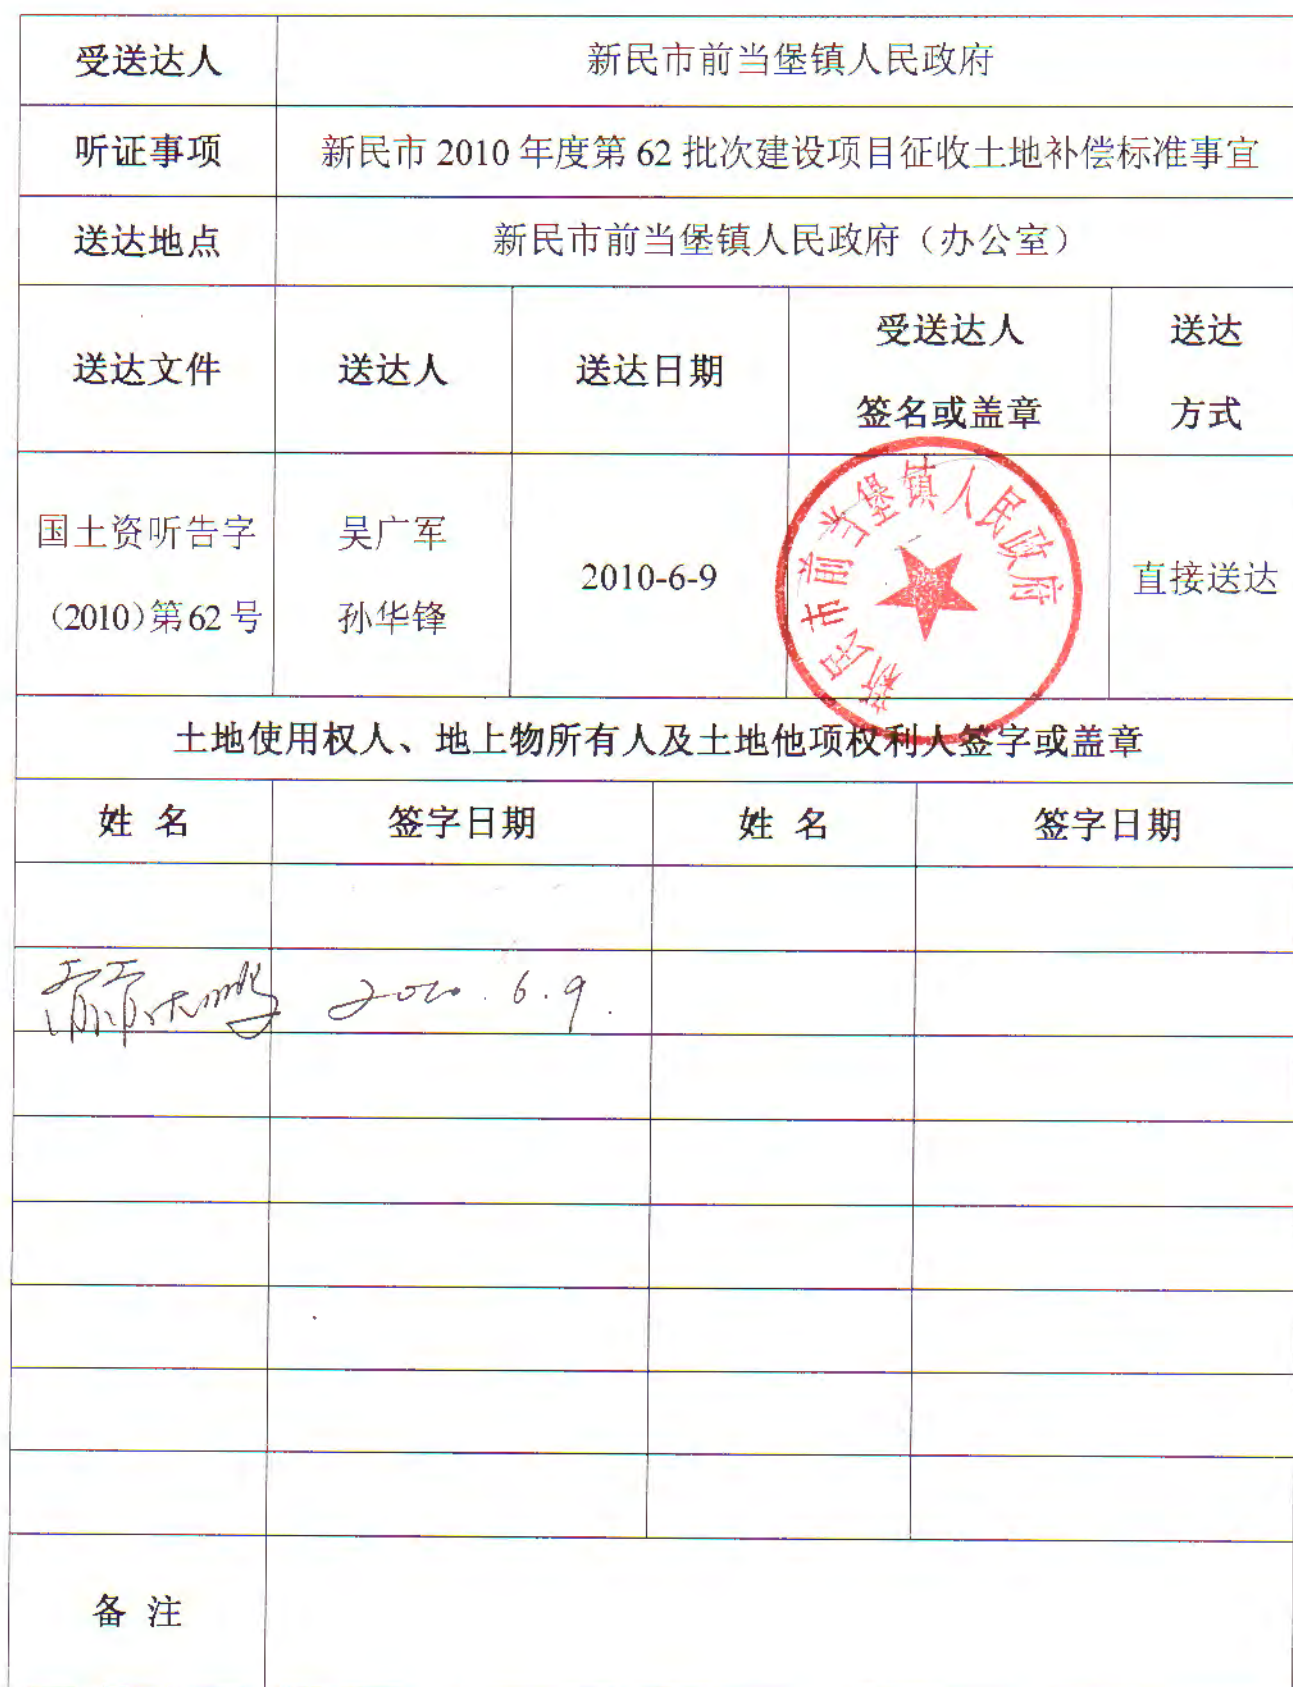 受送达人 新民市前当堡镇人民政府
听证事项 新民市 2010 年度第 62 批次建设项目征收土地补偿标准事宜
送达地点 新民市前当堡镇人民政府（办公室）
送达文件 送达人 送达日期 受送达人 签名或盖章 送达 方式
国土资听告字 吴广军 2010-6-9 直接送达
（2010）第 62 号 孙华锋
新民市前当堡镇人民政府
土地使用权人、地上物所有人及土地他项权利人签字或盖章
姓 名 签字日期 姓 名 签字日期
6.9.
备 注